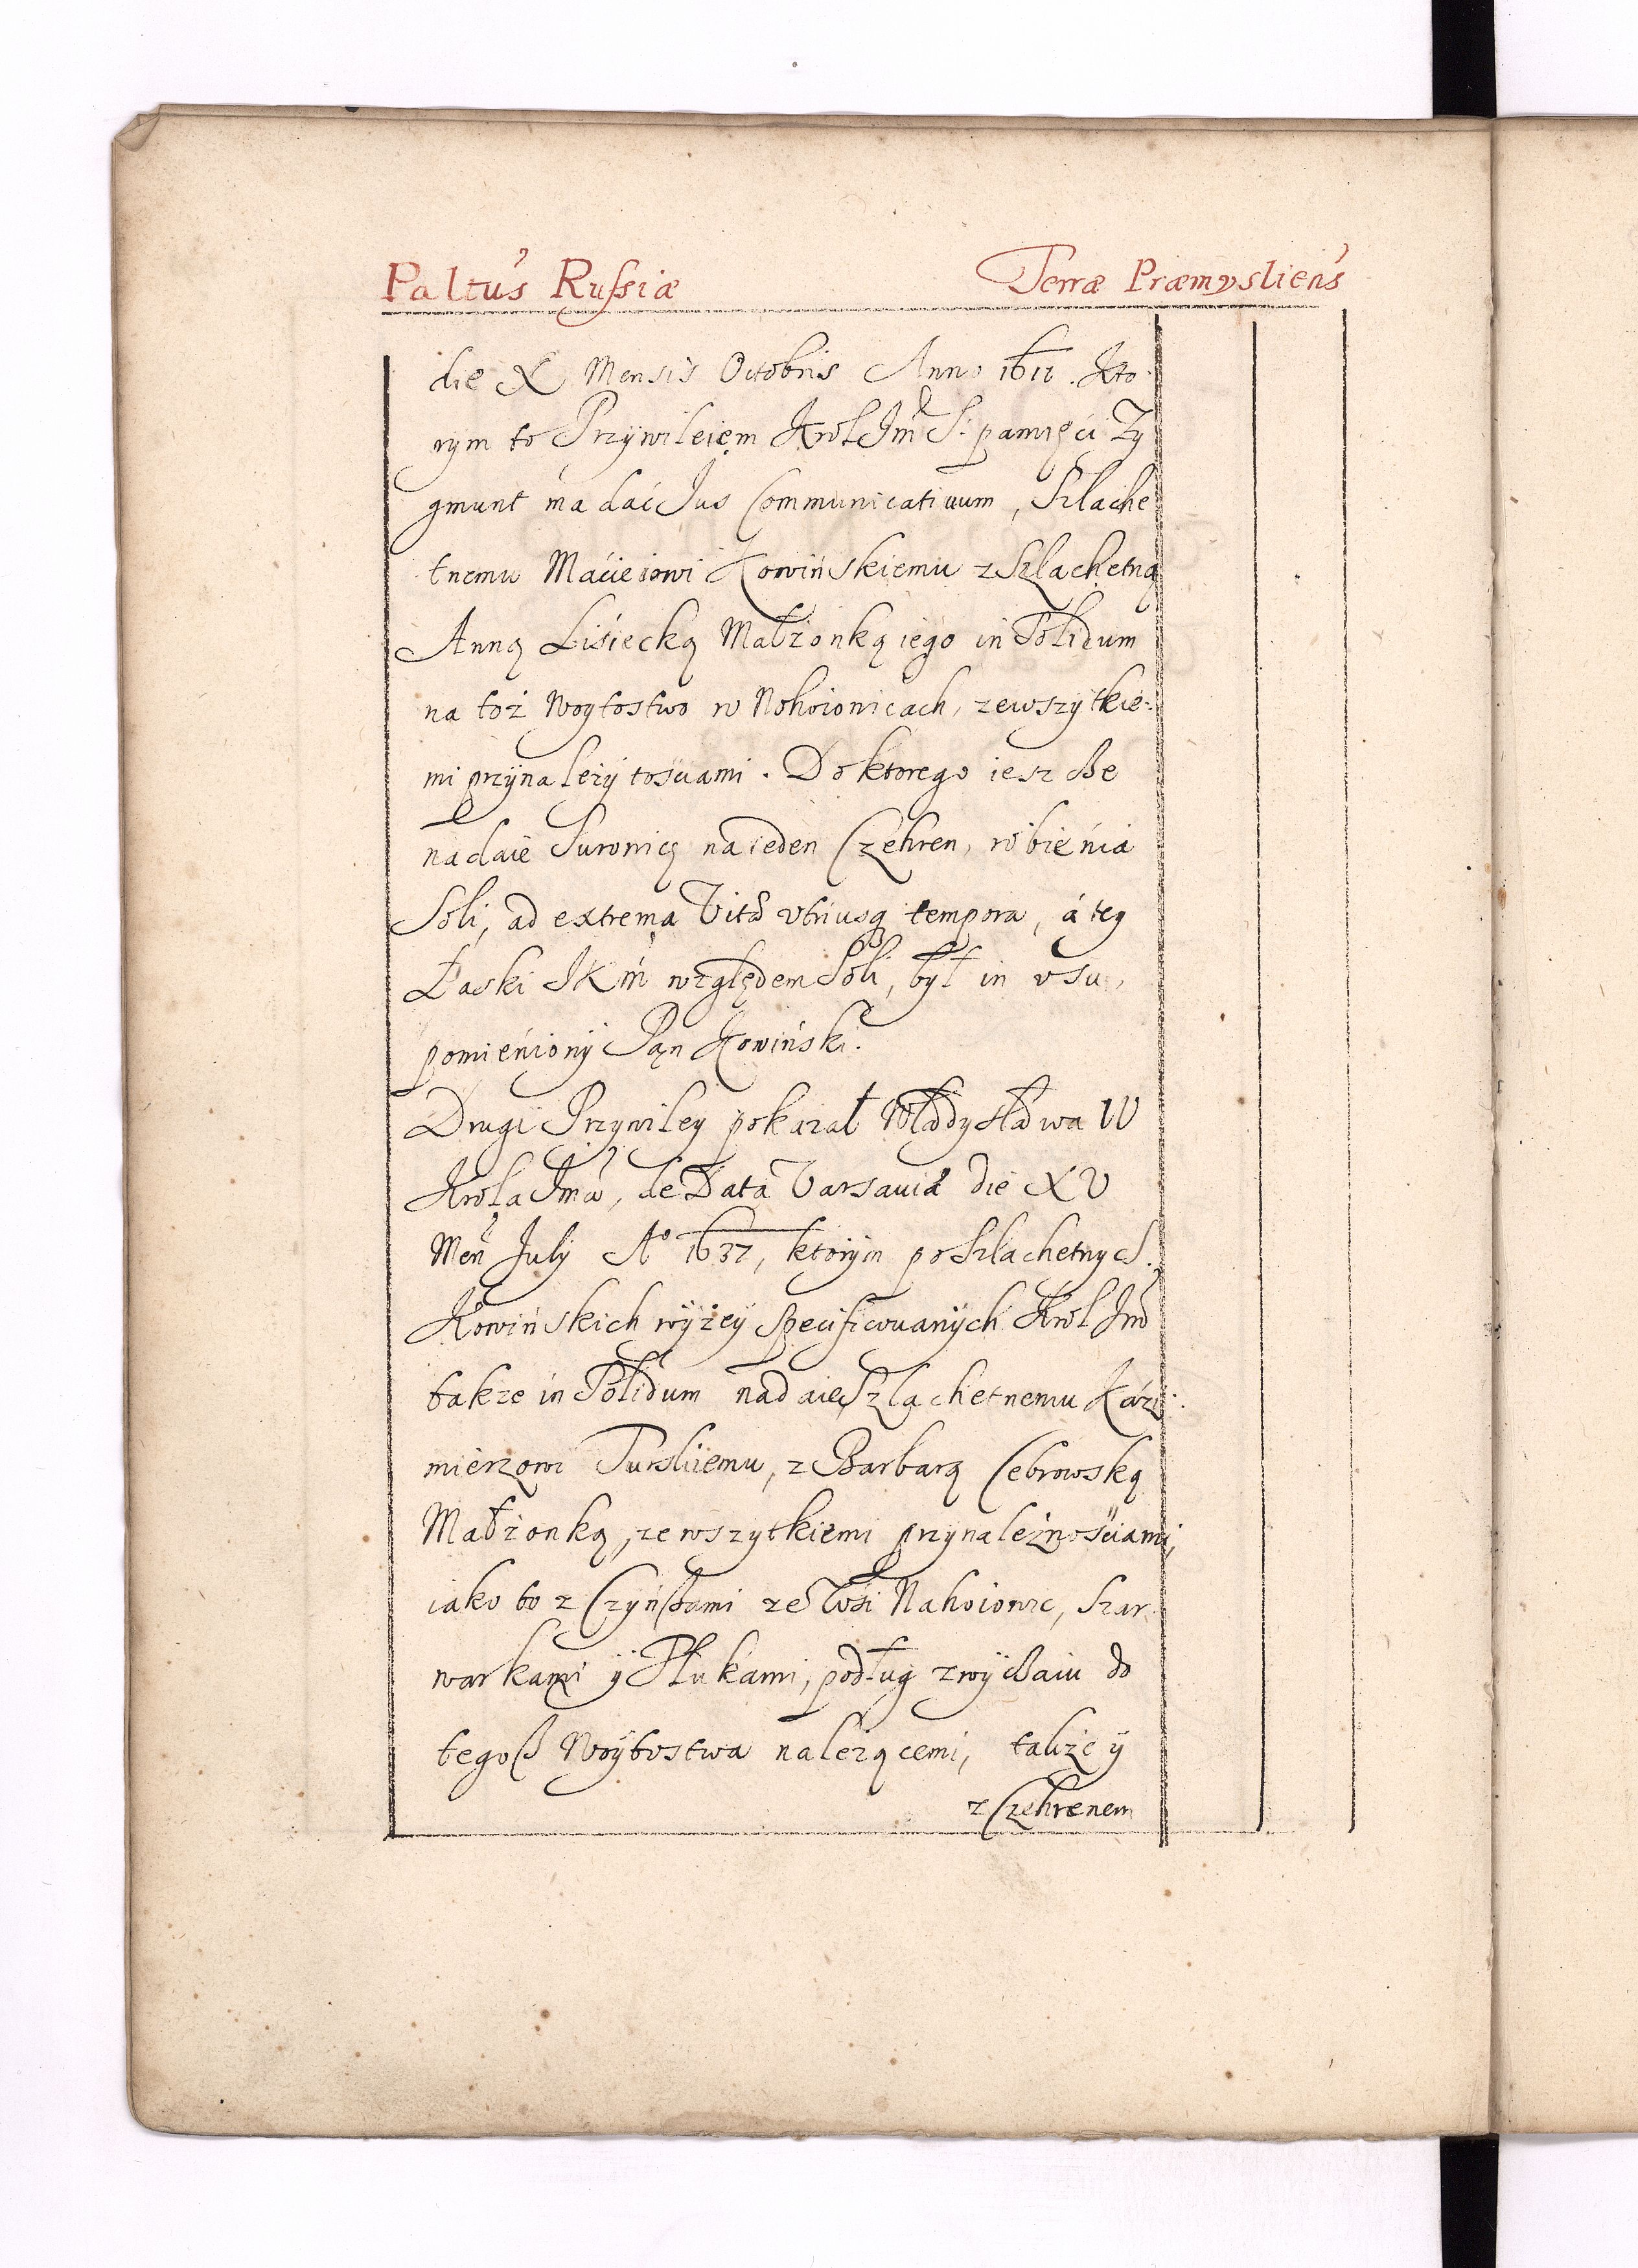 Paltus Russiæ Terræ Præmysliens
die X Mensis Octobris Anno 1611. Kto-
rym to Przywileiem Krol Jm S. pamięci Zy
gmunt ma dać Jus Communicativum, Szlache
tnemu Maćieiowi Kowińskiemu z Szlachetną
Anną Lisiecką Małżonką iego in Solidum
na toż Woytostwo w Nohoiowicach, zewszytkie-
mi przynależytośćiami. Do ktorego ieszcße
nadaie Surowicę na ieden Czehren, robięnia
Soli, ad extrema Vitæ vtriusq tempora, á tey
Łaski JKm względem Soli, był in vsu,
pomięniony Pąn Kowiński.
Drugi Przywiley pokazał Władysława IV
Krola Jmći, de Data Varsaviæ die XV
Men July Aº 1637, ktorym po Szlachetnych
Kowińskich wyżey specificowanych Krol Jm
takze in Solidum nadaie Szlachetnemu Kázi-
mierzowi Turskiemu, z Barbarą Cebrowską
Małżonką, ze wszytkiemi przynależnośćiami,
iako to z Czynßami ze Wsi Nahoiowic, Szar-
warkami y Tłukami, podług zwyczaiu do
tegoß Woytostwa należącemi, także y
z Czehrenem